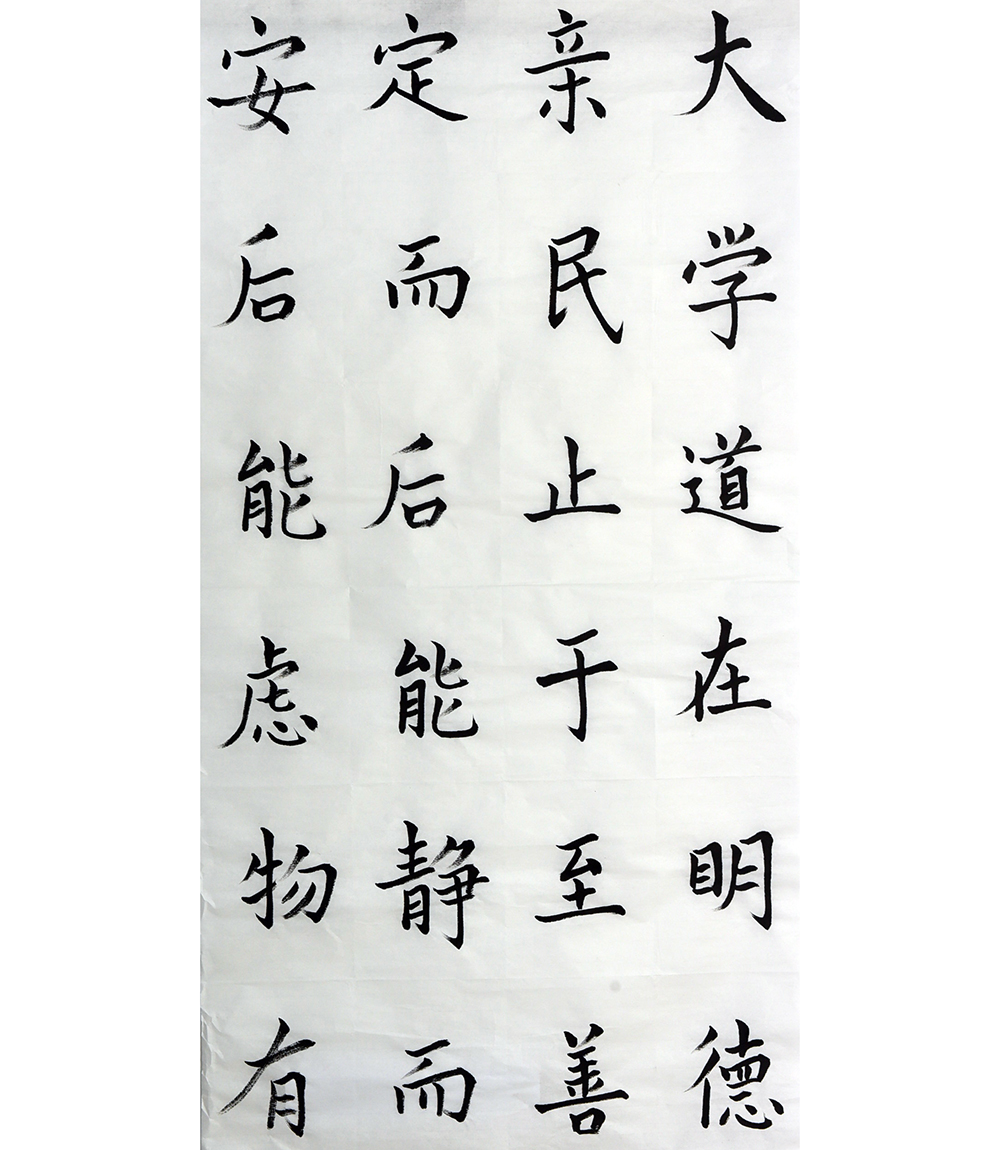 大学道在明德
亲民止于至善
定而后能静而
安后能虑物有